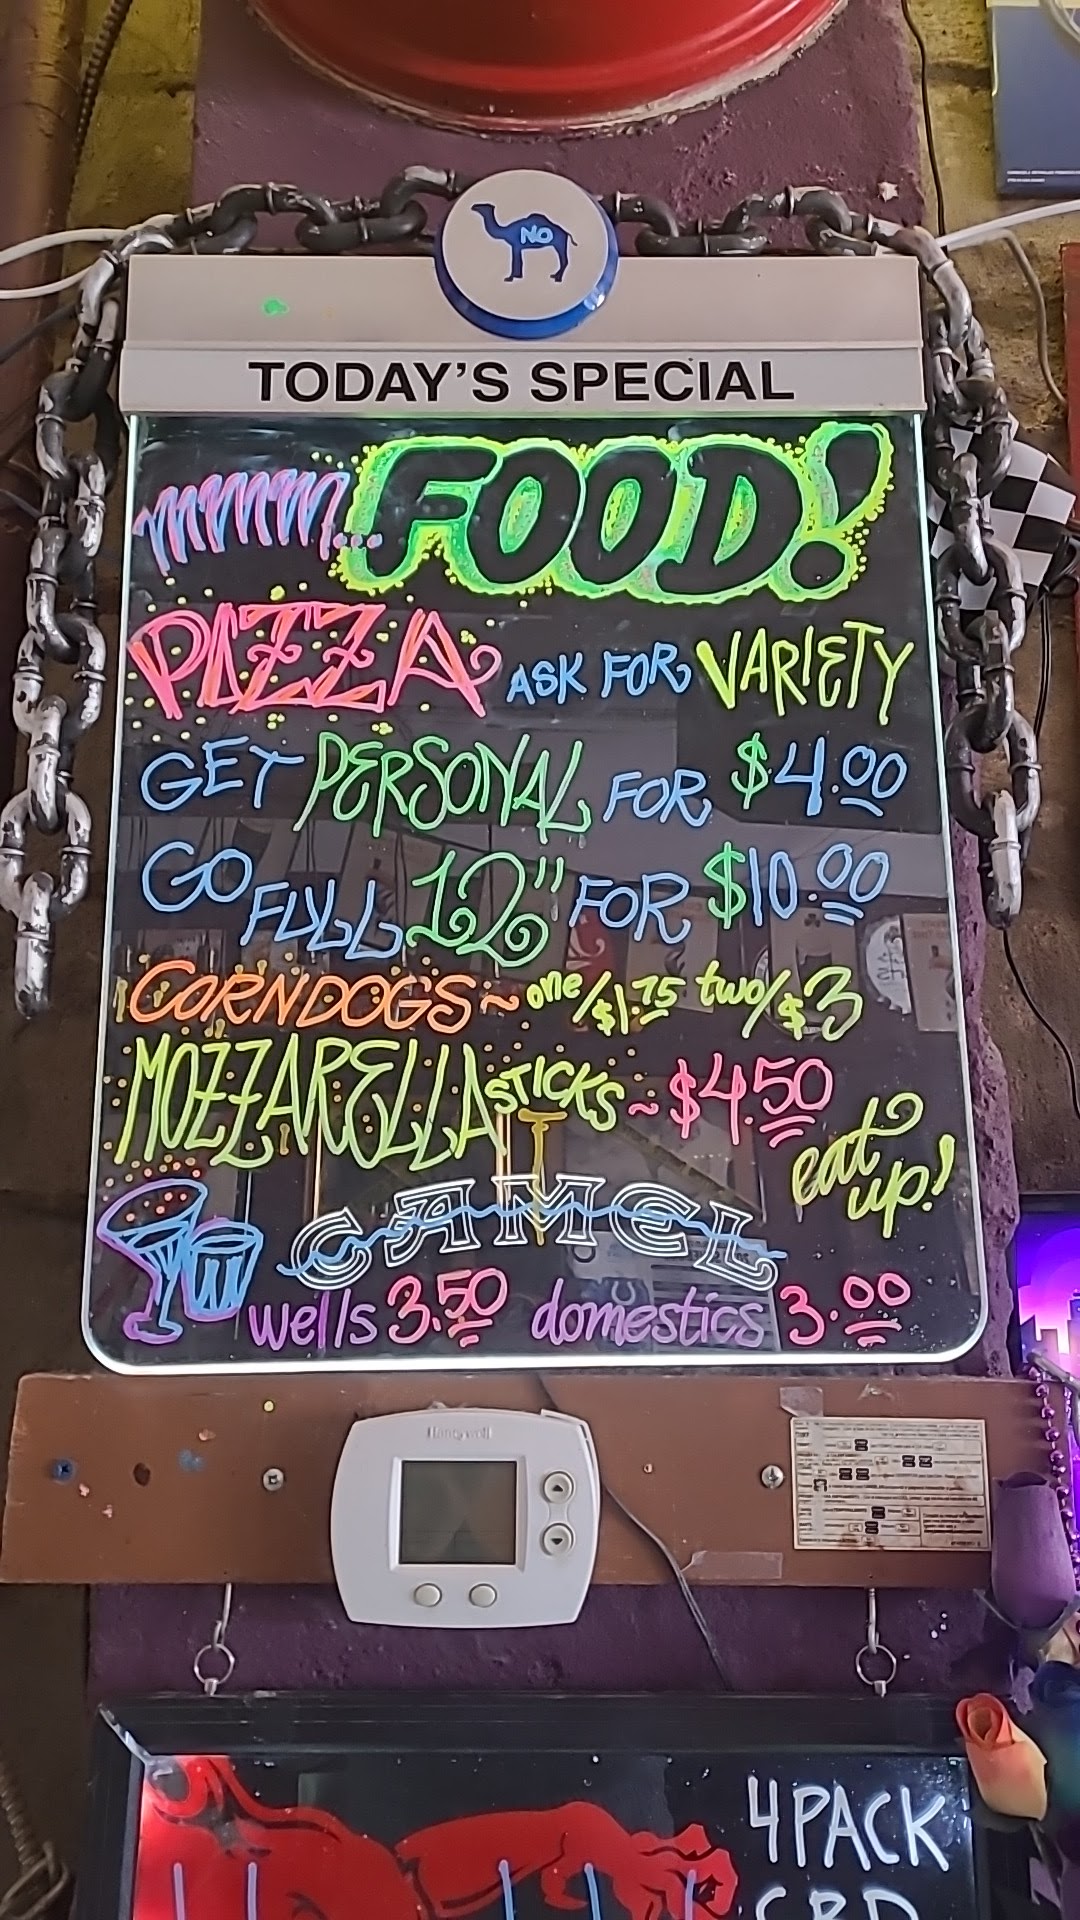 NO
TODAY'S SPECIAL
mmm... FOOD!
PIZZA ASK FOR VARIETY
GET PERSONAL FOR $4.00
GO FULL 12" FOR $10.00
CORNDOGS ~ one/$1.75 two/$3
MOZZARELLA STICKS ~ $4.50
eat up!
CAMEL
wells 3.50 domestics 3.00
Honeywell
4 PACK